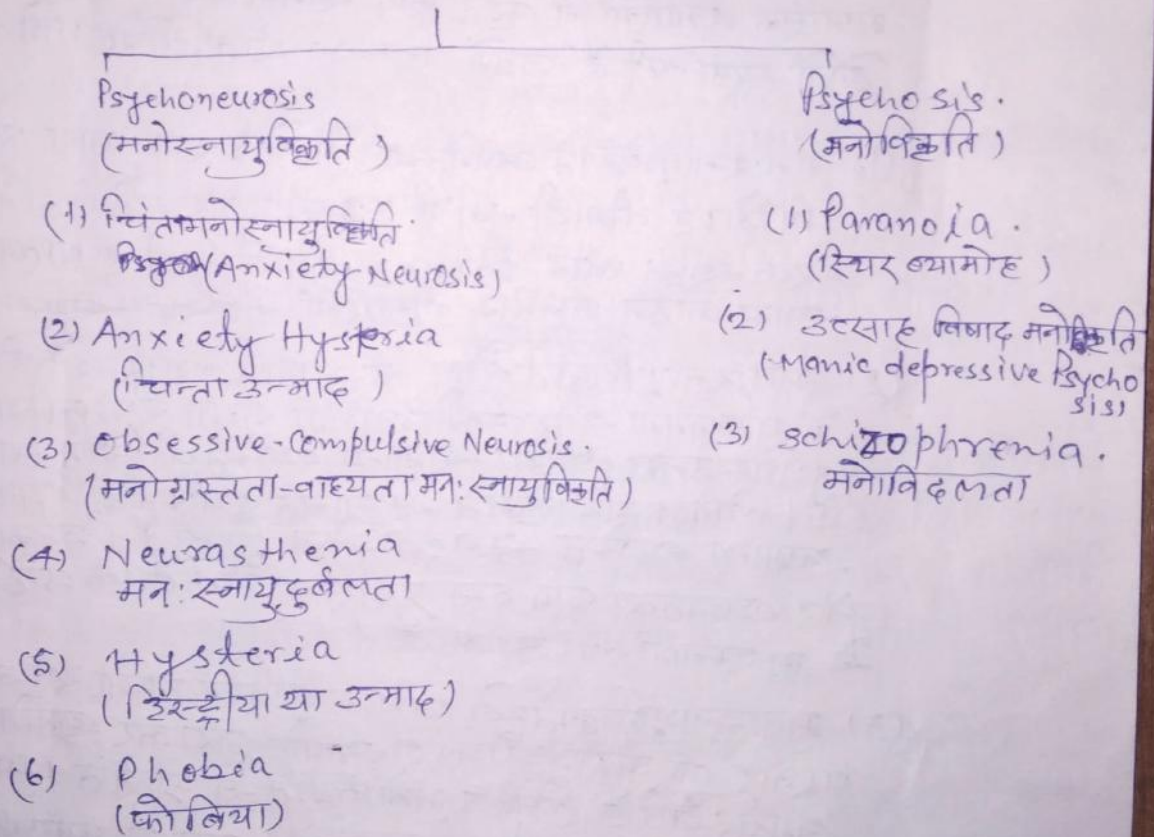 Psychoneurosis
(मनोस्नायुविकृति)
(1) चिंतामनोस्नायुविकृति.
(Anxiety Neurosis)
(2) Anxiety Hysteria
(चिन्ता उन्माद)
(3) Obsessive-Compulsive Neurosis.
(मनोग्रस्तता-वाह्यता मन: स्नायुविकृति)
(4) Neurasthenia
मन: स्नायुदुर्बलता
(5) Hysteria
(हिस्ट्रीया या उन्माद)
(6) Phobia
(फोबिया)
Psychosis.
(मनोविकृति)
(1) Paranoia.
(स्थिर व्यामोह)
(2) उत्साह विषाद मनोविकृति
(Manic depressive Psycho
sis)
(3) Schizophrenia.
मनोविदलता